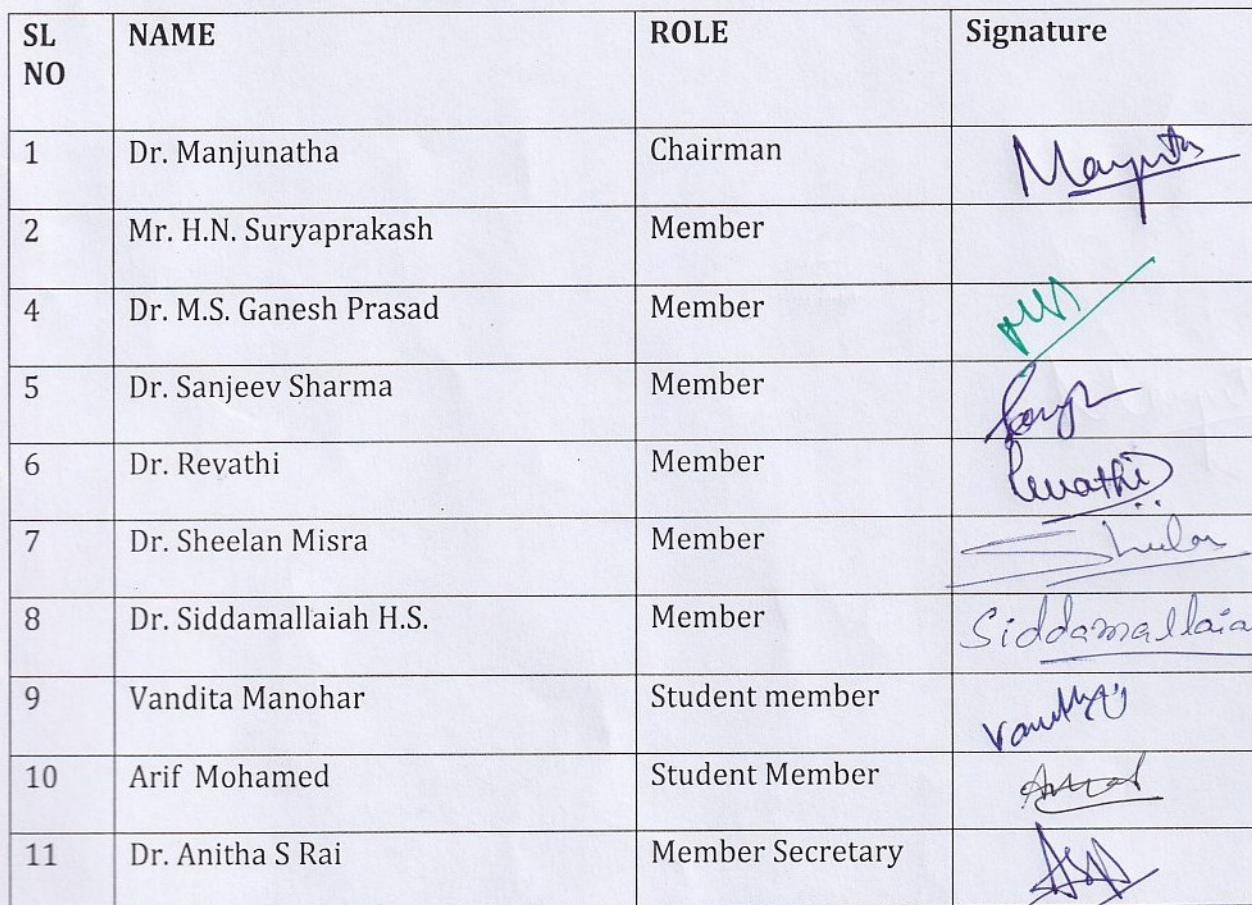 SL NO NAME ROLE Signature
1 Dr. Manjunatha Chairman
2 Mr. H.N. Suryaprakash Member
4 Dr. M.S. Ganesh Prasad Member
5 Dr. Sanjeev Sharma Member
6 Dr. Revathi Member Revathi
7 Dr. Sheelan Misra Member
8 Dr. Siddamallaiah H.S. Member Siddamallaia
9 Vandita Manohar Student member
10 Arif Mohamed Student Member
11 Dr. Anitha S Rai Member Secretary